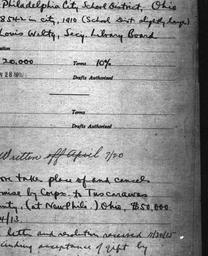 Philadelphia City School District, Ohio
8542 in city, 1910 (School Dist. slightly larger)
Louis Weltz, Secy. Library Board
20,000 Terms 10%
Drafts Authorized
Terms
Drafts Authorized
Written off April 7/20
take place of and cancels
mise by Corps. to Tuscarawas
nty, (at New Phila.) Ohio, $50,000.
4/13.
letter and resolution received 11/30/15
anding acceptance of gift by